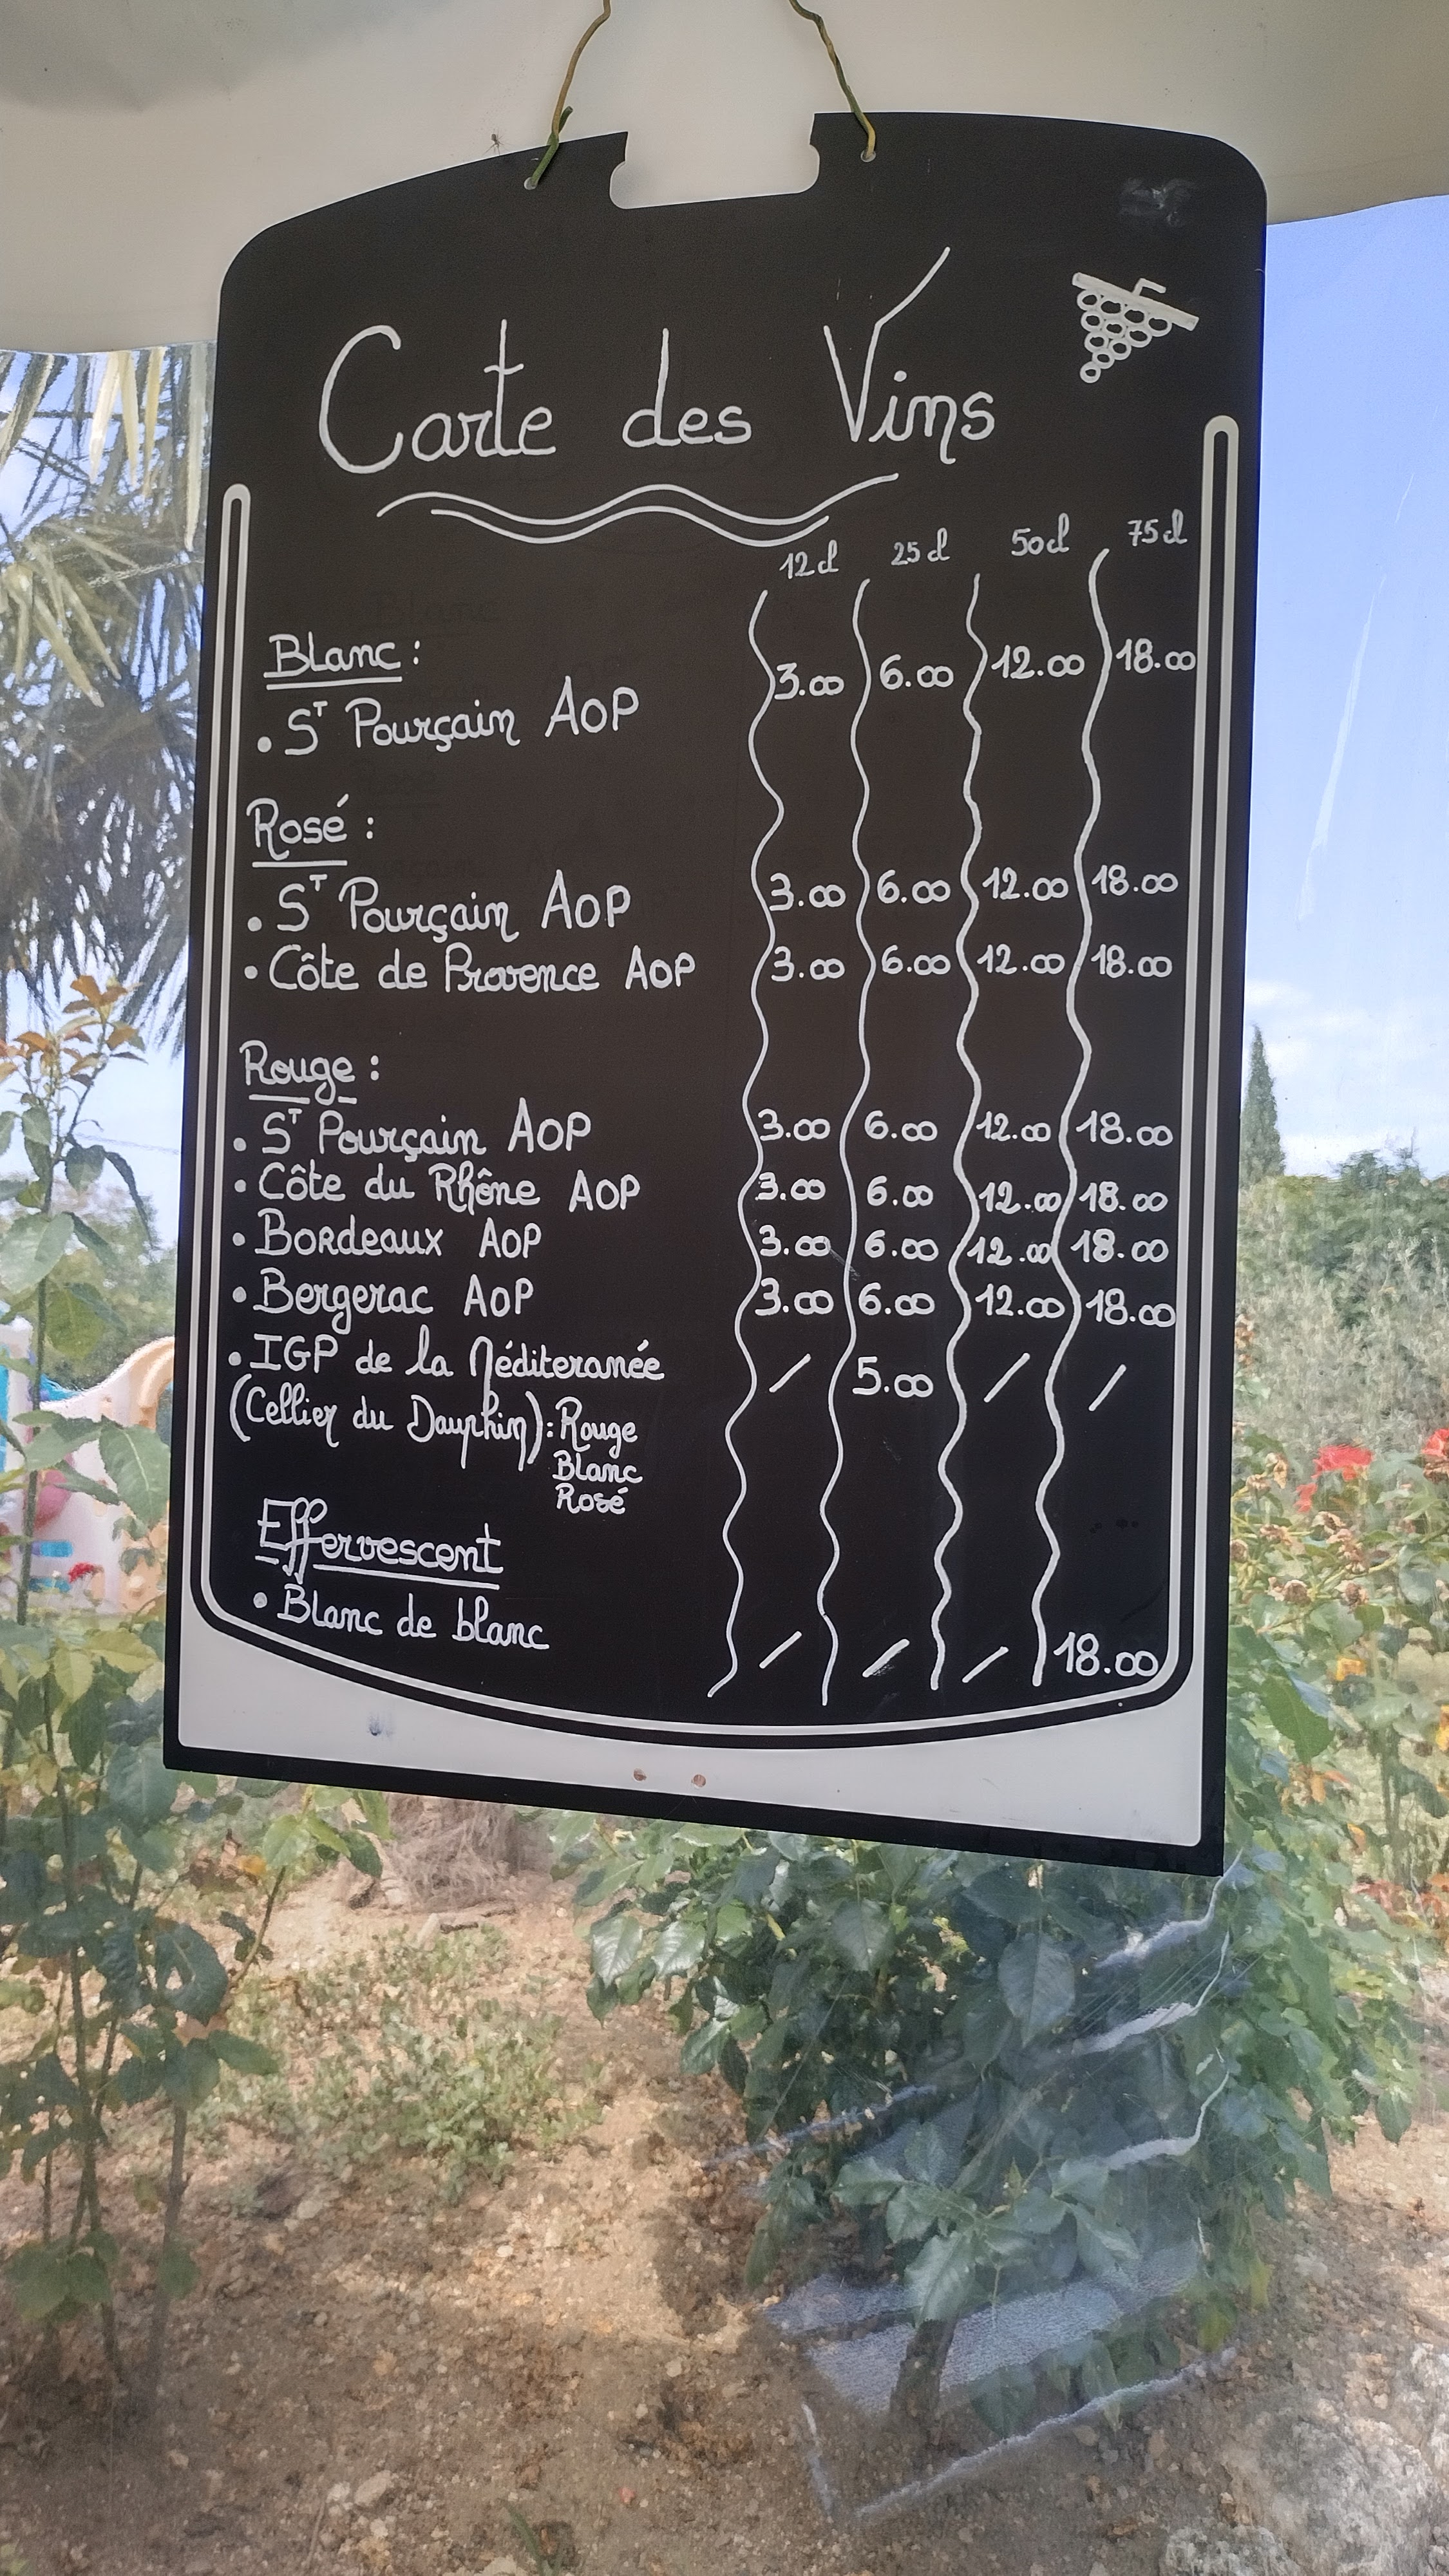 Carte des Vins
12cl 25cl 50cl 75cl
Blanc :
• St Pourçain AOP 3.00 6.00 12.00 18.00
Rosé :
• St Pourçain AOP 3.00 6.00 12.00 18.00
• Côte de Provence AOP 3.00 6.00 12.00 18.00
Rouge :
• St Pourçain AOP 3.00 6.00 12.00 18.00
• Côte du Rhône AOP 3.00 6.00 12.00 18.00
• Bordeaux AOP 3.00 6.00 12.00 18.00
• Bergerac AOP 3.00 6.00 12.00 18.00
• IGP de la Méditeranée / 5.00 / /
(Cellier du Dauphin) : Rouge
Blanc
Rosé
Effervescent
• Blanc de blanc / / / 18.00